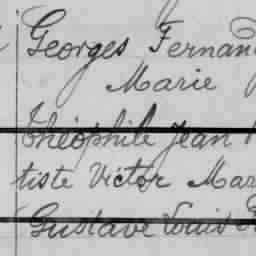 Georges Fernan
Marie
Théophile Jean
tiste Victor Mar
Gustave Louis